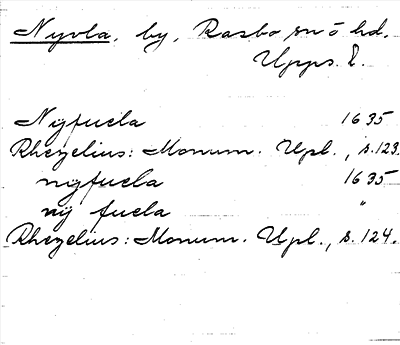 Nyvla, by, Rasbo sn o hd.
Upps. l.
Nÿfucla 1635
Rhezelius: Monum. Upl., s. 123.
nÿfucla 1635
nÿ fucla "
Rhezelius: Monum. Upl., s. 124.